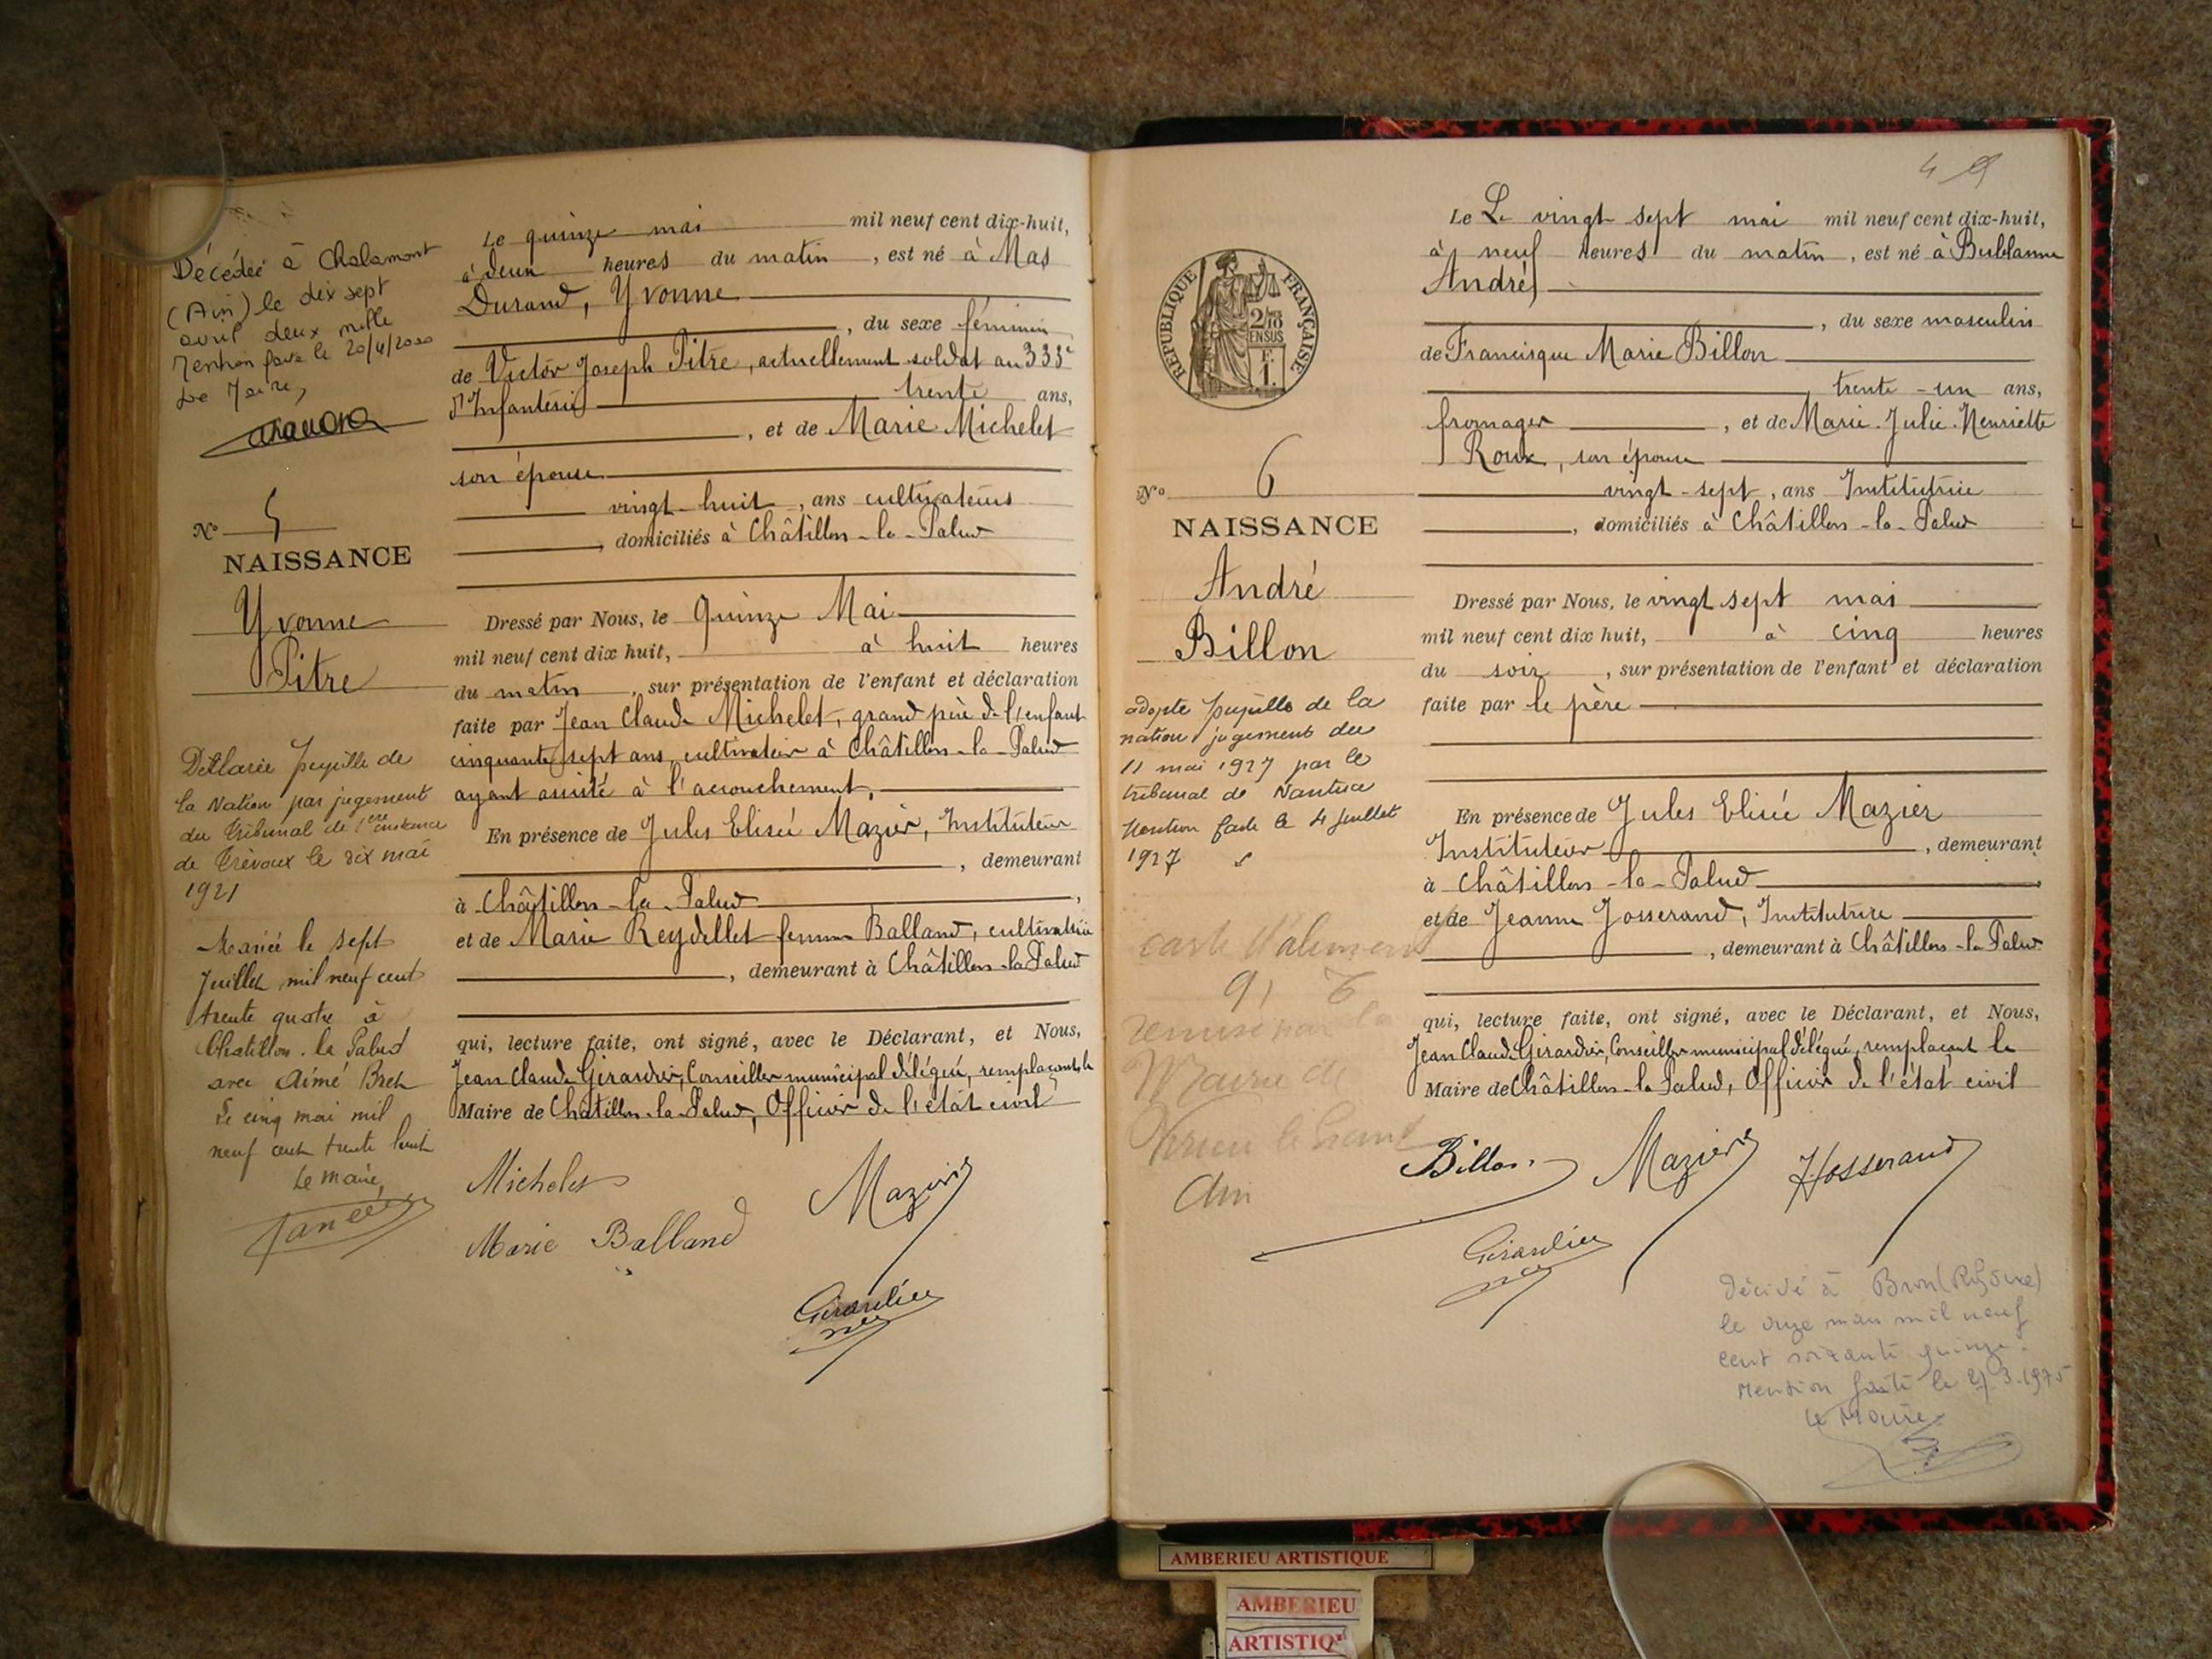 Décédée à Chalamont
(Ain) le dix sept
avril deux mille
Mention faite le 20/4/2000
Le Maire,
N° 5
NAISSANCE
Yvonne
Pitre
Déclarée pupille de
la Nation par jugement
du tribunal de 1ere instance
de Trévoux le dix mai
1921
Mariée le sept
Juillet mil neuf cent
trente quatre à
Chatillon-la Palud
avec Aimé
Le cinq mai mil
neuf cent trente huit
Le maire,
Le quinze mai mil neuf cent dix-huit,
à deux heures du matin, est né à Mas
Durand, Yvonne
, du sexe féminin
de Victor Joseph Pitre, actuellement soldat au 333e
d'Infanterie trente ans,
, et de Marie Michelet
son épouse
vingt-huit, ans cultivateurs
, domiciliés à Châtillon-la-Palud
Dressé par Nous, le Quinze Mai
mil neuf cent dix huit, à huit heures
du matin, sur présentation de l'enfant et déclaration
faite par Jean Claude Michelet, grand père de l'enfant
cinquante sept ans, cultivateur à Châtillon-la-Palud
ayant assisté à l'accouchement,
En présence de Jules Elisée Mazier, Instituteur
, demeurant
à Châtillon-la-Palud,
et de Marie Reydellet femme Balland, cultivatrice
, demeurant à Châtillon-la-Palud
qui, lecture faite, ont signé, avec le Déclarant, et Nous,
Jean Claude Girardier, Conseiller municipal délégué, remplaçant le
Maire de Châtillon-la-Palud, Officier de l'état civil
Michelet
Mazier
Marie Balland
Girardier
RÉPUBLIQUE FRANÇAISE
2/10
EN SUS
F.
1.
N° 6
NAISSANCE
André
Billon
adopté pupille de la
nation jugement du
11 mai 1927 par le
tribunal de Nantua
Mention faite le 4 Juillet
1927
remise par la
Mairie de
Ain
Le Le vingt sept mai mil neuf cent dix-huit,
à neuf heures du matin, est né à Bublanne
André
, du sexe masculin
de Francisque Marie Billon
trente-un ans,
fromager, et de Marie Julie Henriette
Roux, son épouse
vingt-sept, ans Institutrice
, domiciliés à Châtillon-la-Palud
Dressé par Nous, le vingt sept mai
mil neuf cent dix huit, à cinq heures
du soir, sur présentation de l'enfant et déclaration
faite par le père
En présence de Jules Elisée Mazier
Instituteur, demeurant
à Châtillon-la-Palud
et de Jeanne Josserand, Institutrice
, demeurant à Châtillon-la-Palud
qui, lecture faite, ont signé, avec le Déclarant, et Nous,
Jean Claude Girardier, Conseiller municipal délégué, remplaçant le
Maire de Châtillon-la-Palud, Officier de l'état civil
Billon
Mazier
Josserand
Girardier
Décédé à Bron (Rhône)
le onze mars mil neuf
cent soixante quinze.
Mention faite le 3.1975
Le Maire
AMBERIEU ARTISTIQUE
AMBERIEU
ARTISTIQ